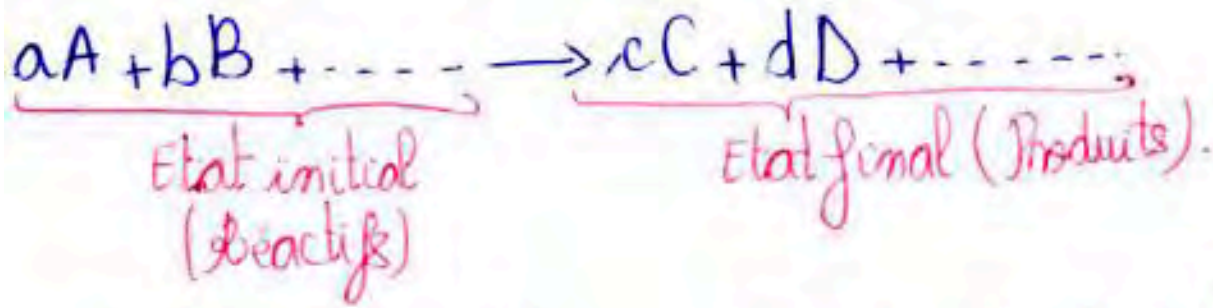 aA + bB + ----- → cC + dD + ------
Etat initial
(Réactifs)
Etat final (Produits).